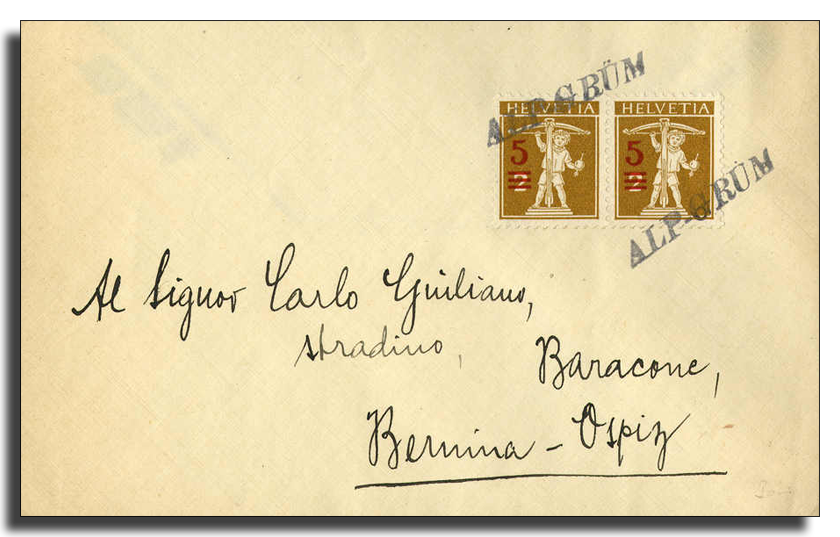 ALP-GRÜM
HELVETIA HELVETIA
5 5
2 2
ALP-GRÜM
Al Signor Carlo Giuliano,
stradino,
Baracone,
Bernina - Ospiz